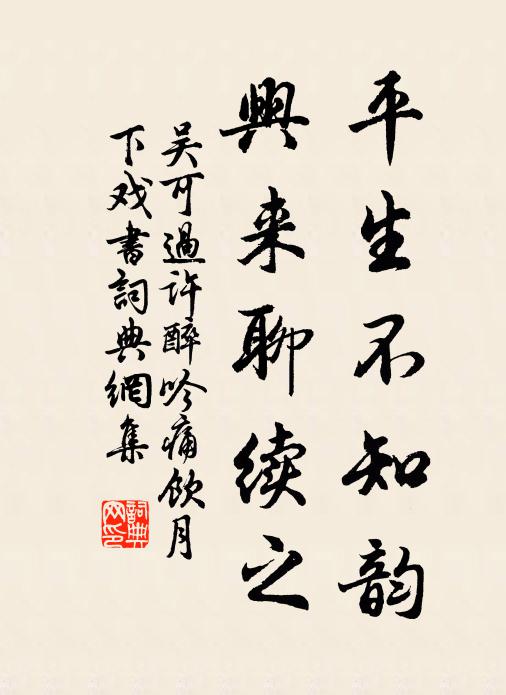 平生不知韵
興来聊续之
吴可過许醉吟痛飲月
下戏書詞典網集
詞典
网印